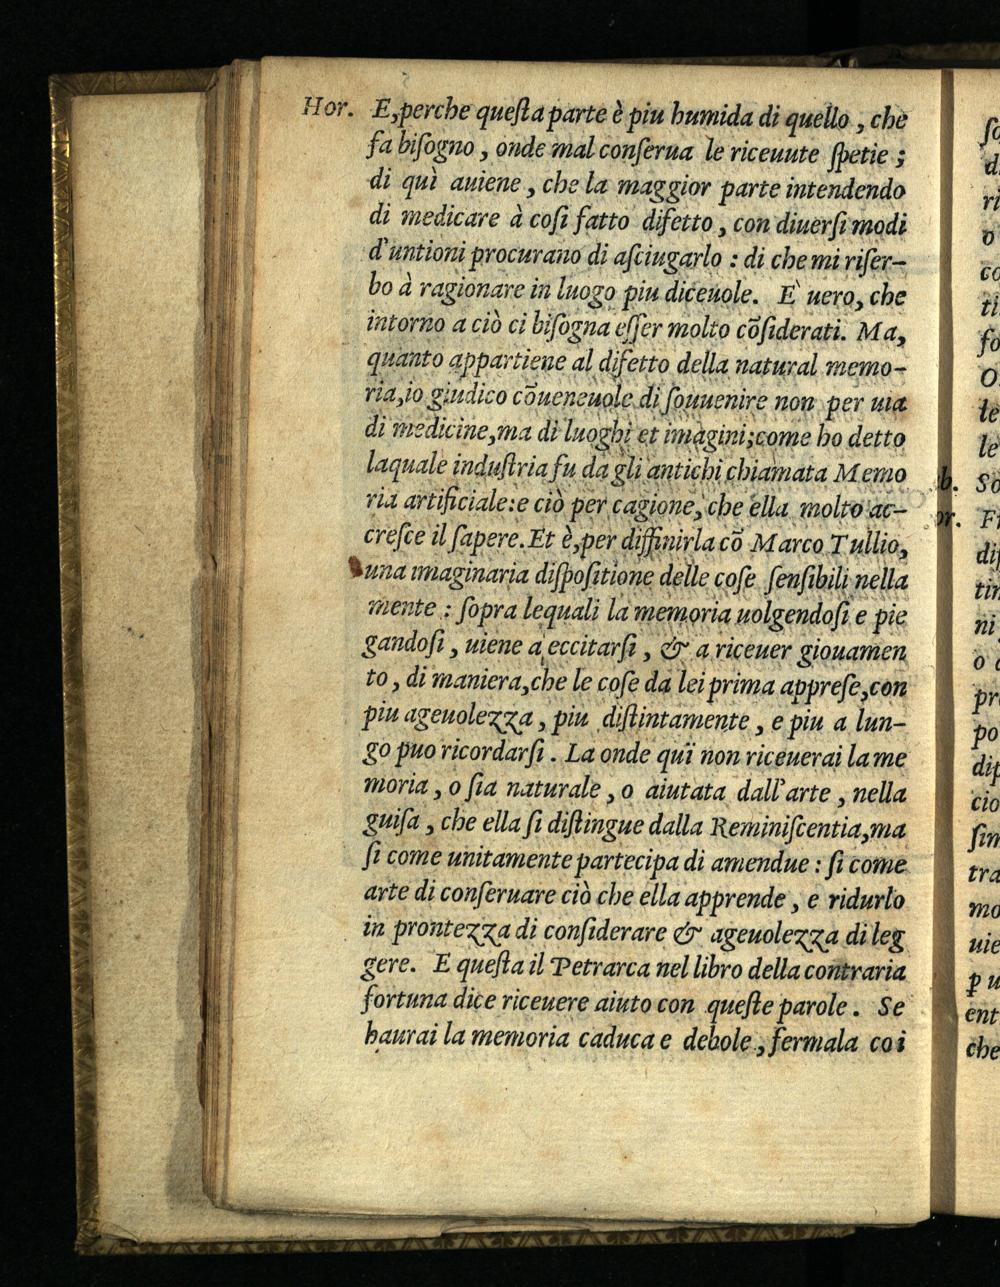 Hor. E, perche queſta parte è piu humida di quello, che
fa biſogno, onde mal conſerua le riceuute ſpetie;
di quì auiene, che la maggior parte intendendo
di medicare à coſi fatto difetto, con diuerſi modi
d'untioni procurano di aſciugarlo: di che mi riſer-
bo à ragionare in luogo piu diceuole. E' uero, che
intorno a ciò ci biſogna eſſer molto cõſiderati. Ma,
quanto appartiene al difetto della natural memo-
ria, io giudico cõueneuole di ſouuenire non per uia
di medicine, ma di luoghi et imagini; come ho detto
laquale induſtria fu da gli antichi chiamata Memo
ria artificiale: e ciò per cagione, che ella molto ac-
creſce il ſapere. Et è, per diffinirla cõ Marco Tullio,
una imaginaria diſpoſitione delle coſe ſenſibili nella
mente: ſopra lequali la memoria uolgendoſi e pie
gandoſi, uiene a eccitarſi, & a riceuer giouamen
to, di maniera, che le coſe da lei prima appreſe, con
piu ageuolezza, piu diſtintamente, e piu a lun-
go puo ricordarſi. La onde quì non riceuerai la me
moria, o ſia naturale, o aiutata dall'arte, nella
guiſa, che ella ſi diſtingue dalla Reminiſcentia, ma
ſi come unitamente partecipa di amendue: ſi come
arte di conſeruare ciò che ella apprende, e ridurlo
in prontezza di conſiderare & ageuolezza di leg
gere. E queſta il Petrarca nel libro della contraria
fortuna dice riceuere aiuto con queſte parole. Se
haurai la memoria caduca e debole, fermala coi